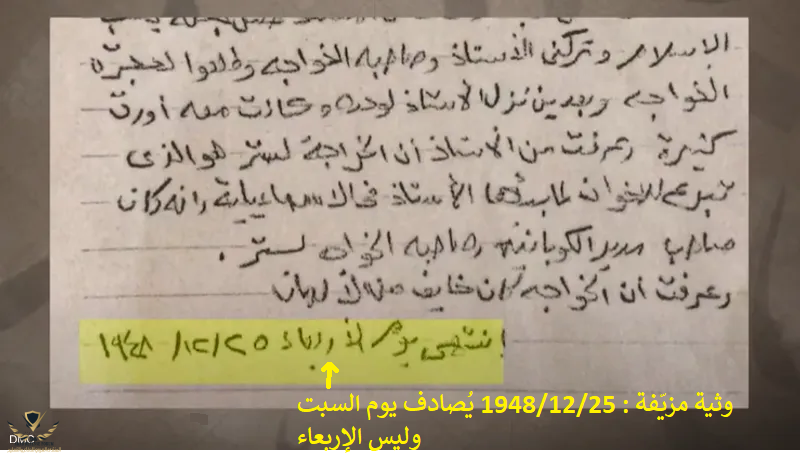 الإسلام وتركنى الأستاذ وصاحبه الخواجه وطلعوا لحجرة
الخواجه وبعدين نزل الأستاذ لوحده وكانت معه أورق
كثيرة وعرفت من الأستاذ أن الخواجة لستر هو الذى
تبرع للاخوان لما بدأها الأستاذ فى الاسماعيلية وانه كان
صاحب مدير الكوبانيه وصاحبه الخواجه لستر .
وعرفت أن الخواجه كان خايف من الألمان
انتهى يوم الأربعاء ٢٥/١٢/١٩٤٨
وثية مزيّفة : 1948/12/25 يُصادف يوم السبت
وليس الإربعاء
DMC